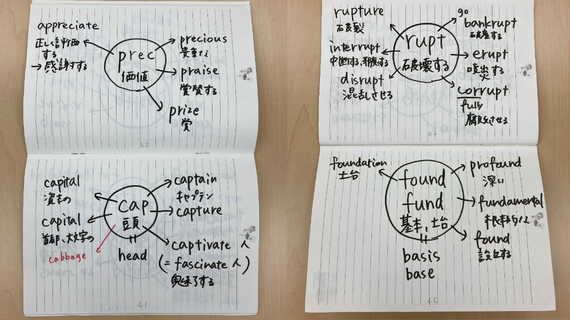 appreciate
正しく評価
する
→感謝する
prec
価値
precious
貴重な
praise
賞賛する
prize
賞
capital
資本の
capital
首都、大文字の
cabbage
cap
頭
||
head
captain
キャプテン
capture
captivate 人
(= fascinate 人)
魅了する
rupture
破裂
interrupt
中断する、邪魔する
disrupt
混乱させる
rupt
破壊する
go
bankrupt
破産する
erupt
噴火する
corrupt
fully
腐敗させる
foundation
土台
found
fund
基本、土台
||
basis
base
profound
深い
fundamental
根本的な
found
設立する